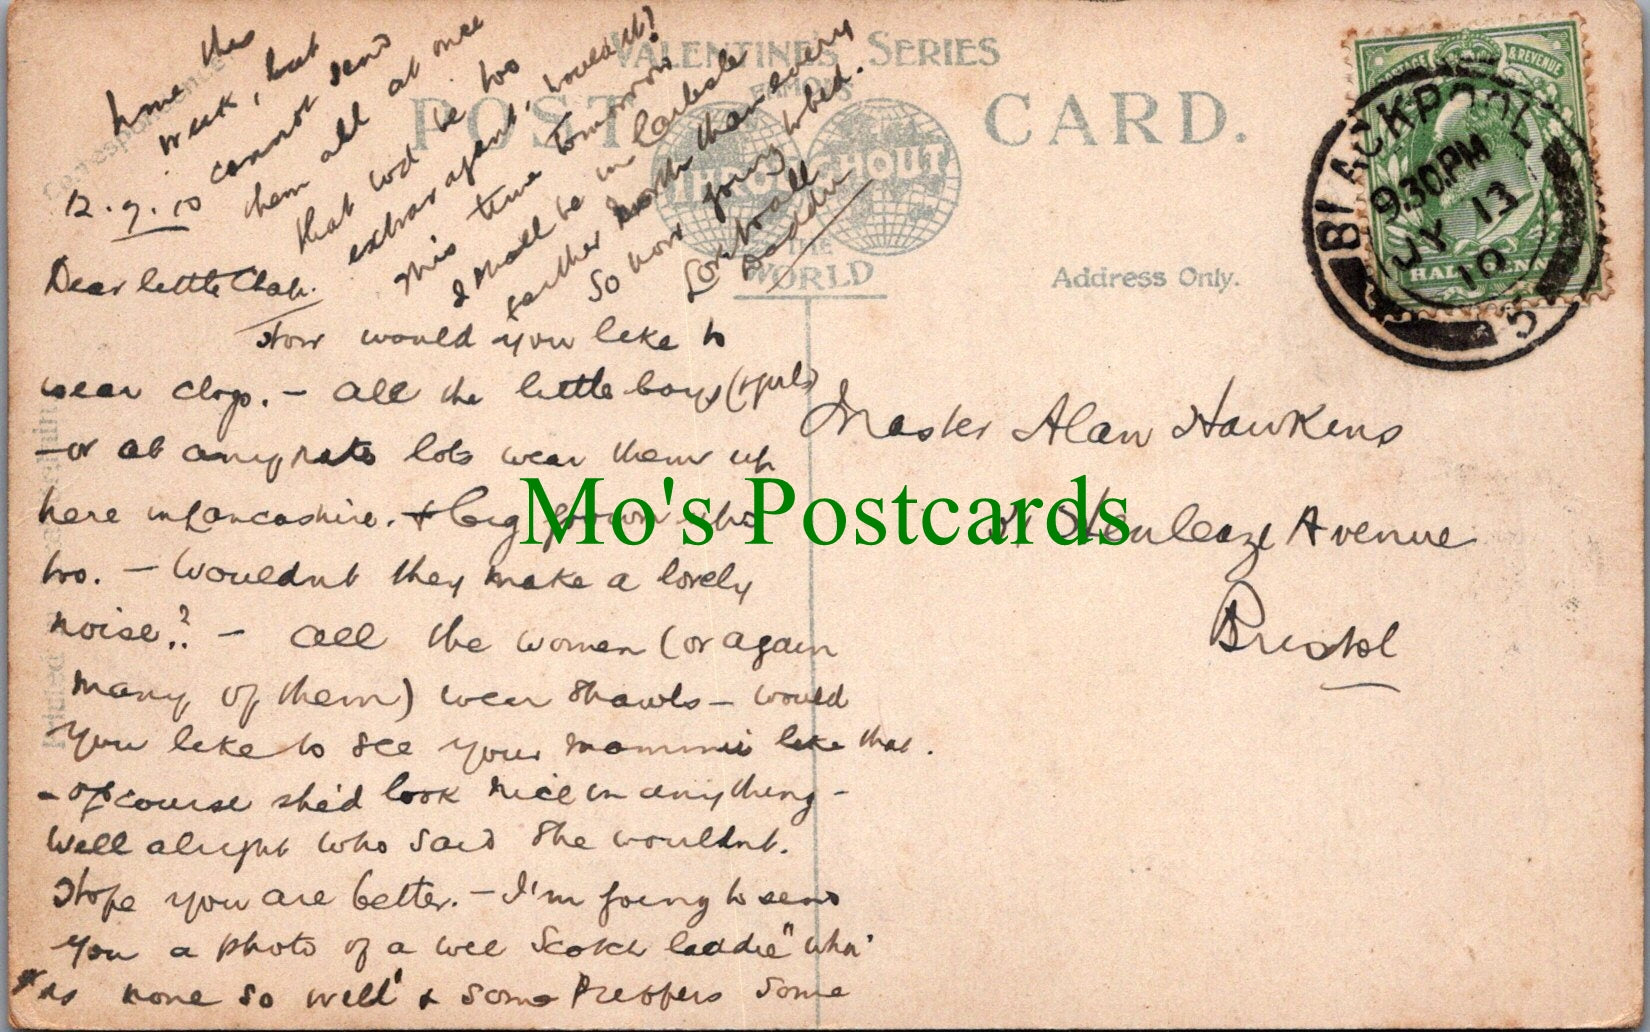 VALENTINE'S SERIES
FAMOUS
POST CARD.
THROUGHOUT
THE
WORLD
Address Only.
BLACKPOOL
9.30PM
JY 13
10
5
POSTAGE & REVENUE
HALFPENNY
12.7.10
Dear little Chap.
How would you like to
wear clogs. - All the little boys (& girls)
- or at any rate lots wear them up
here in Lancashire. & big grown ups
too. - Wouldnt they make a lovely
noise? - All the women (or again
many of them) wear shawls - would
you like to see your mommie like that.
- of course she'd look nice in anything -
Well alright who said she wouldnt.
Hope you are better. - I'm going to send
you a photo of a wee Scotch laddie "wha'
is none so well' & some Preppers some
home this
week, but
cannot send
them all at once
that wod be too
extravagant, wouldnt?
This time tomorrow
I shall be in Carlisle
farther North than every
So now going to bed.
Lord love all
Daddie
Master Alan Hawkins
21 Henleaze Avenue
Bristol
Mo's Postcards